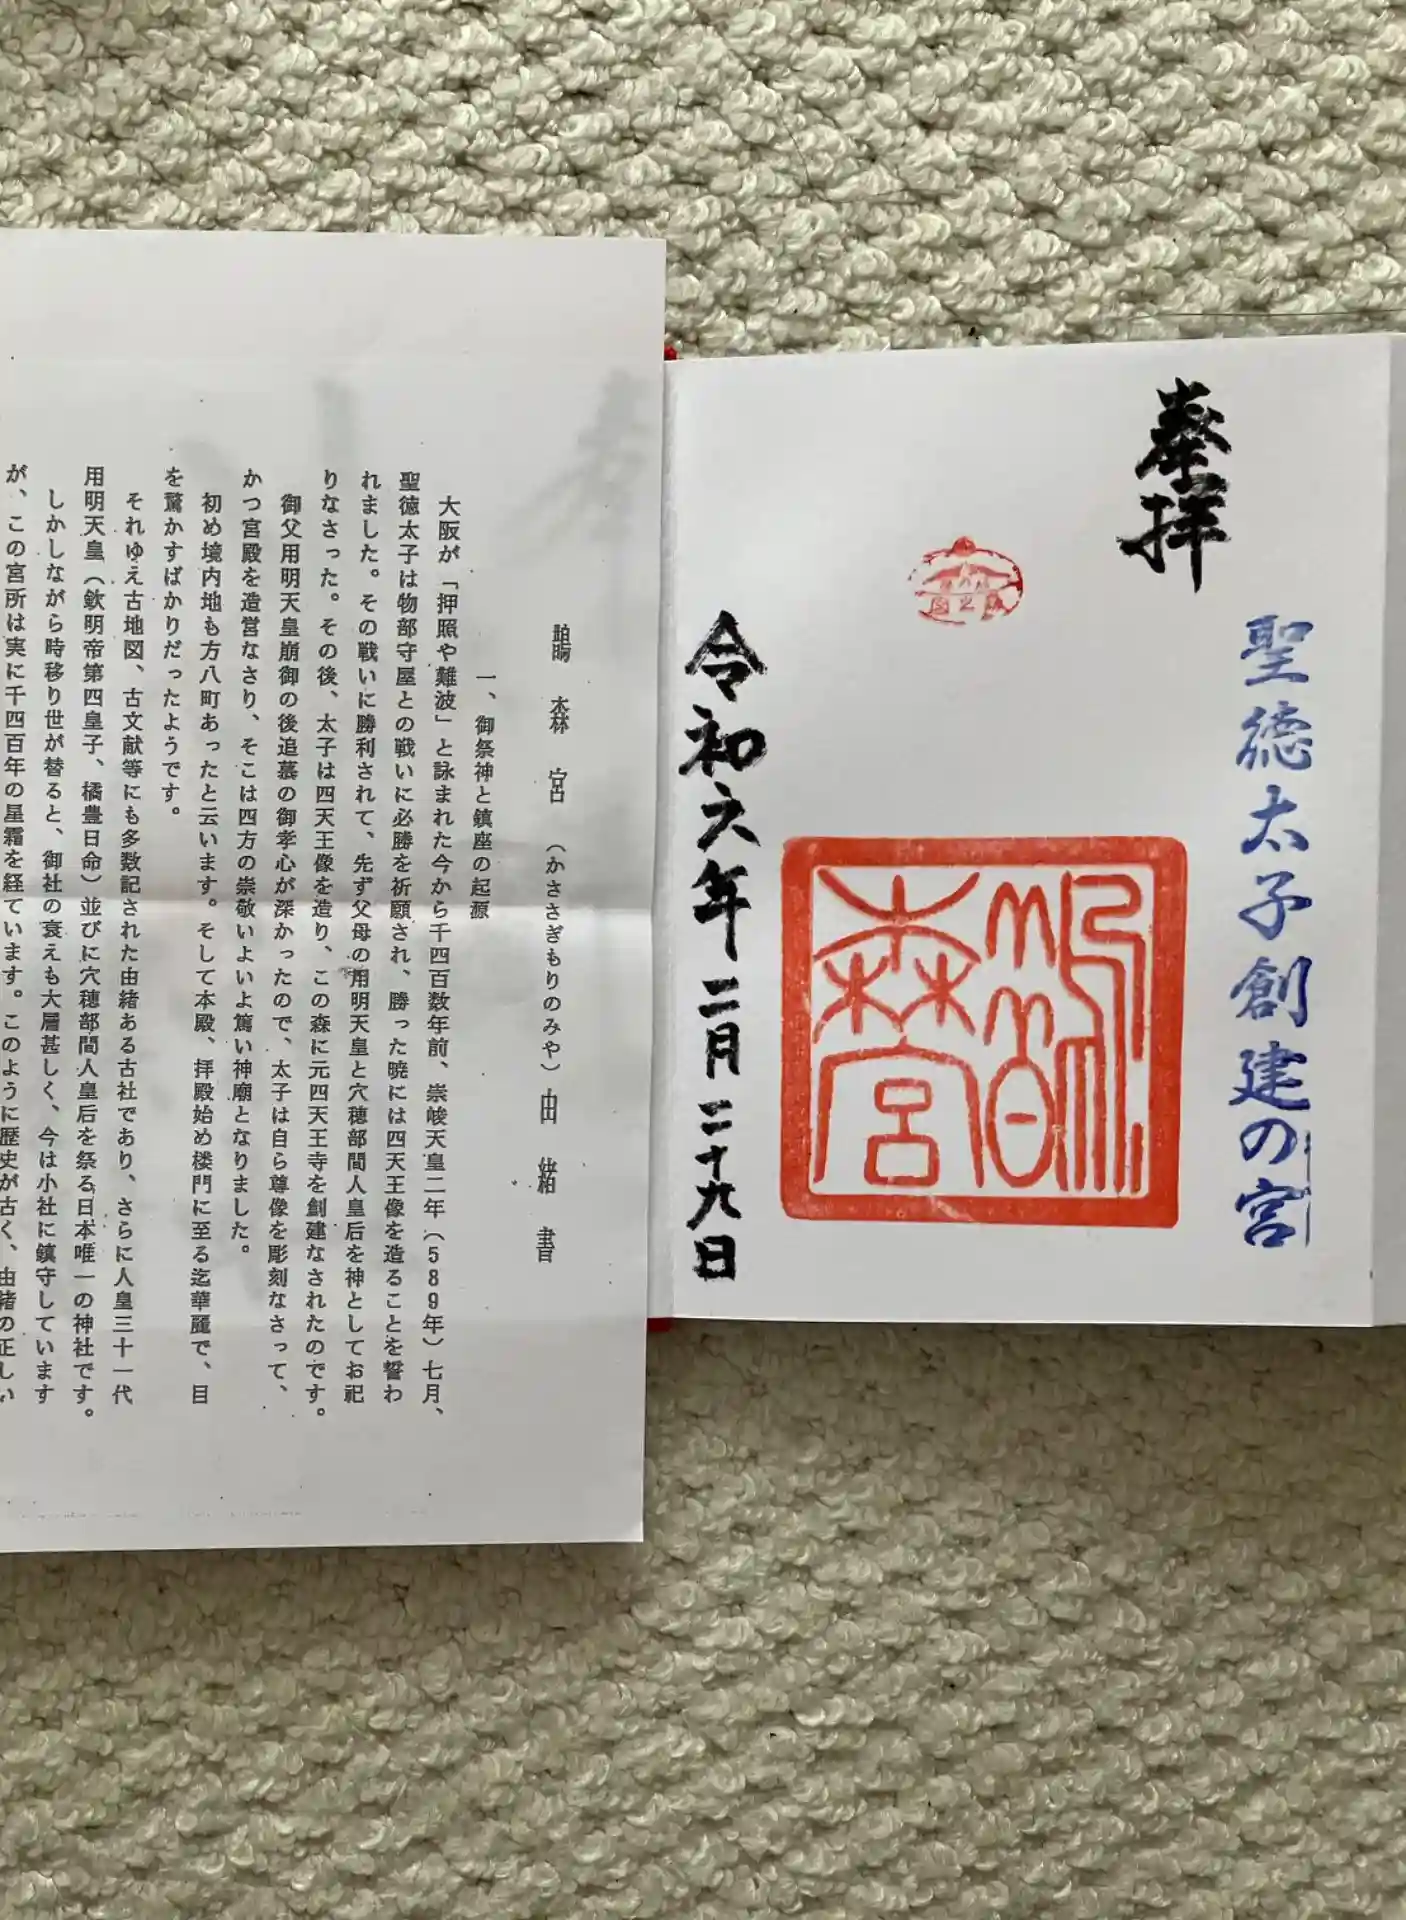 奉拝
聖徳太子創建の宮
鵲森宮
令和六年二月二十九日
鵲森宮（かささぎもりのみや）由緒書
一、御祭神と鎮座の起源
大阪が「押照や難波」と詠まれた今から千四百数年前、崇峻天皇二年（589年）七月、
聖徳太子は物部守屋との戦いに必勝を祈願され、勝った暁には四天王像を造ることを誓わ
れました。その戦いに勝利されて、先ず父母の用明天皇と穴穂部間人皇后を神としてお祀
りなさった。その後、太子は四天王像を造り、この森に元四天王寺を創建なされたのです。
御父用明天皇崩御の後追慕の御孝心が深かったので、太子は自ら尊像を彫刻なさって、
かつ宮殿を造営なさり、そこは四方の崇敬いよいよ篤い神廟となりました。
初め境内地も方八町あったと云います。そして本殿、拝殿始め楼門に至る迄華麗で、目
を驚かすばかりだったようです。
それゆえ古地図、古文献等にも多数記された由緒ある古社であり、さらに人皇三十一代
用明天皇（欽明帝第四皇子、橘豊日命）並びに穴穂部間人皇后を祭る日本唯一の神社です。
しかしながら時移り世が替ると、御社の衰えも大層甚しく、今は小社に鎮守しています
が、この宮所は実に千四百年の星霜を経ています。このように歴史が古く、由緒の正しい